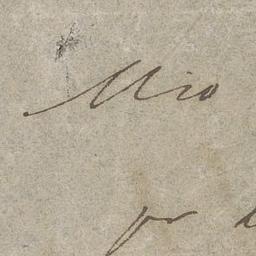 Mio
pr